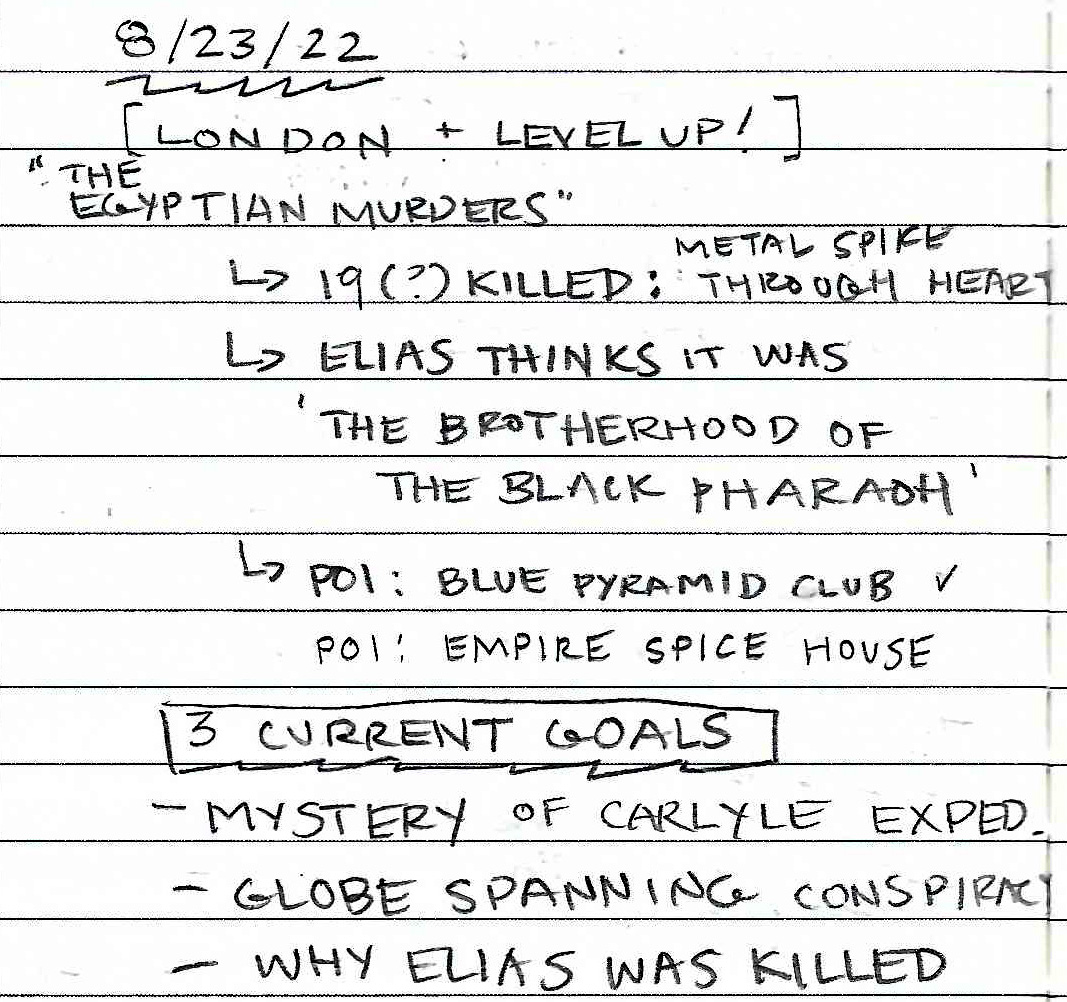 8/23/22
[LONDON + LEVEL UP!]
"THE
EGYPTIAN MURDERS"
METAL SPIKE
↳ 19 (?) KILLED: THROUGH HEART
↳ ELIAS THINKS IT WAS
'THE BROTHERHOOD OF
THE BLACK PHARAOH'
↳ POI: BLUE PYRAMID CLUB ✓
POI: EMPIRE SPICE HOUSE
3 CURRENT GOALS
- MYSTERY OF CARLYLE EXPED.
- GLOBE SPANNING CONSPIRACY
- WHY ELIAS WAS KILLED